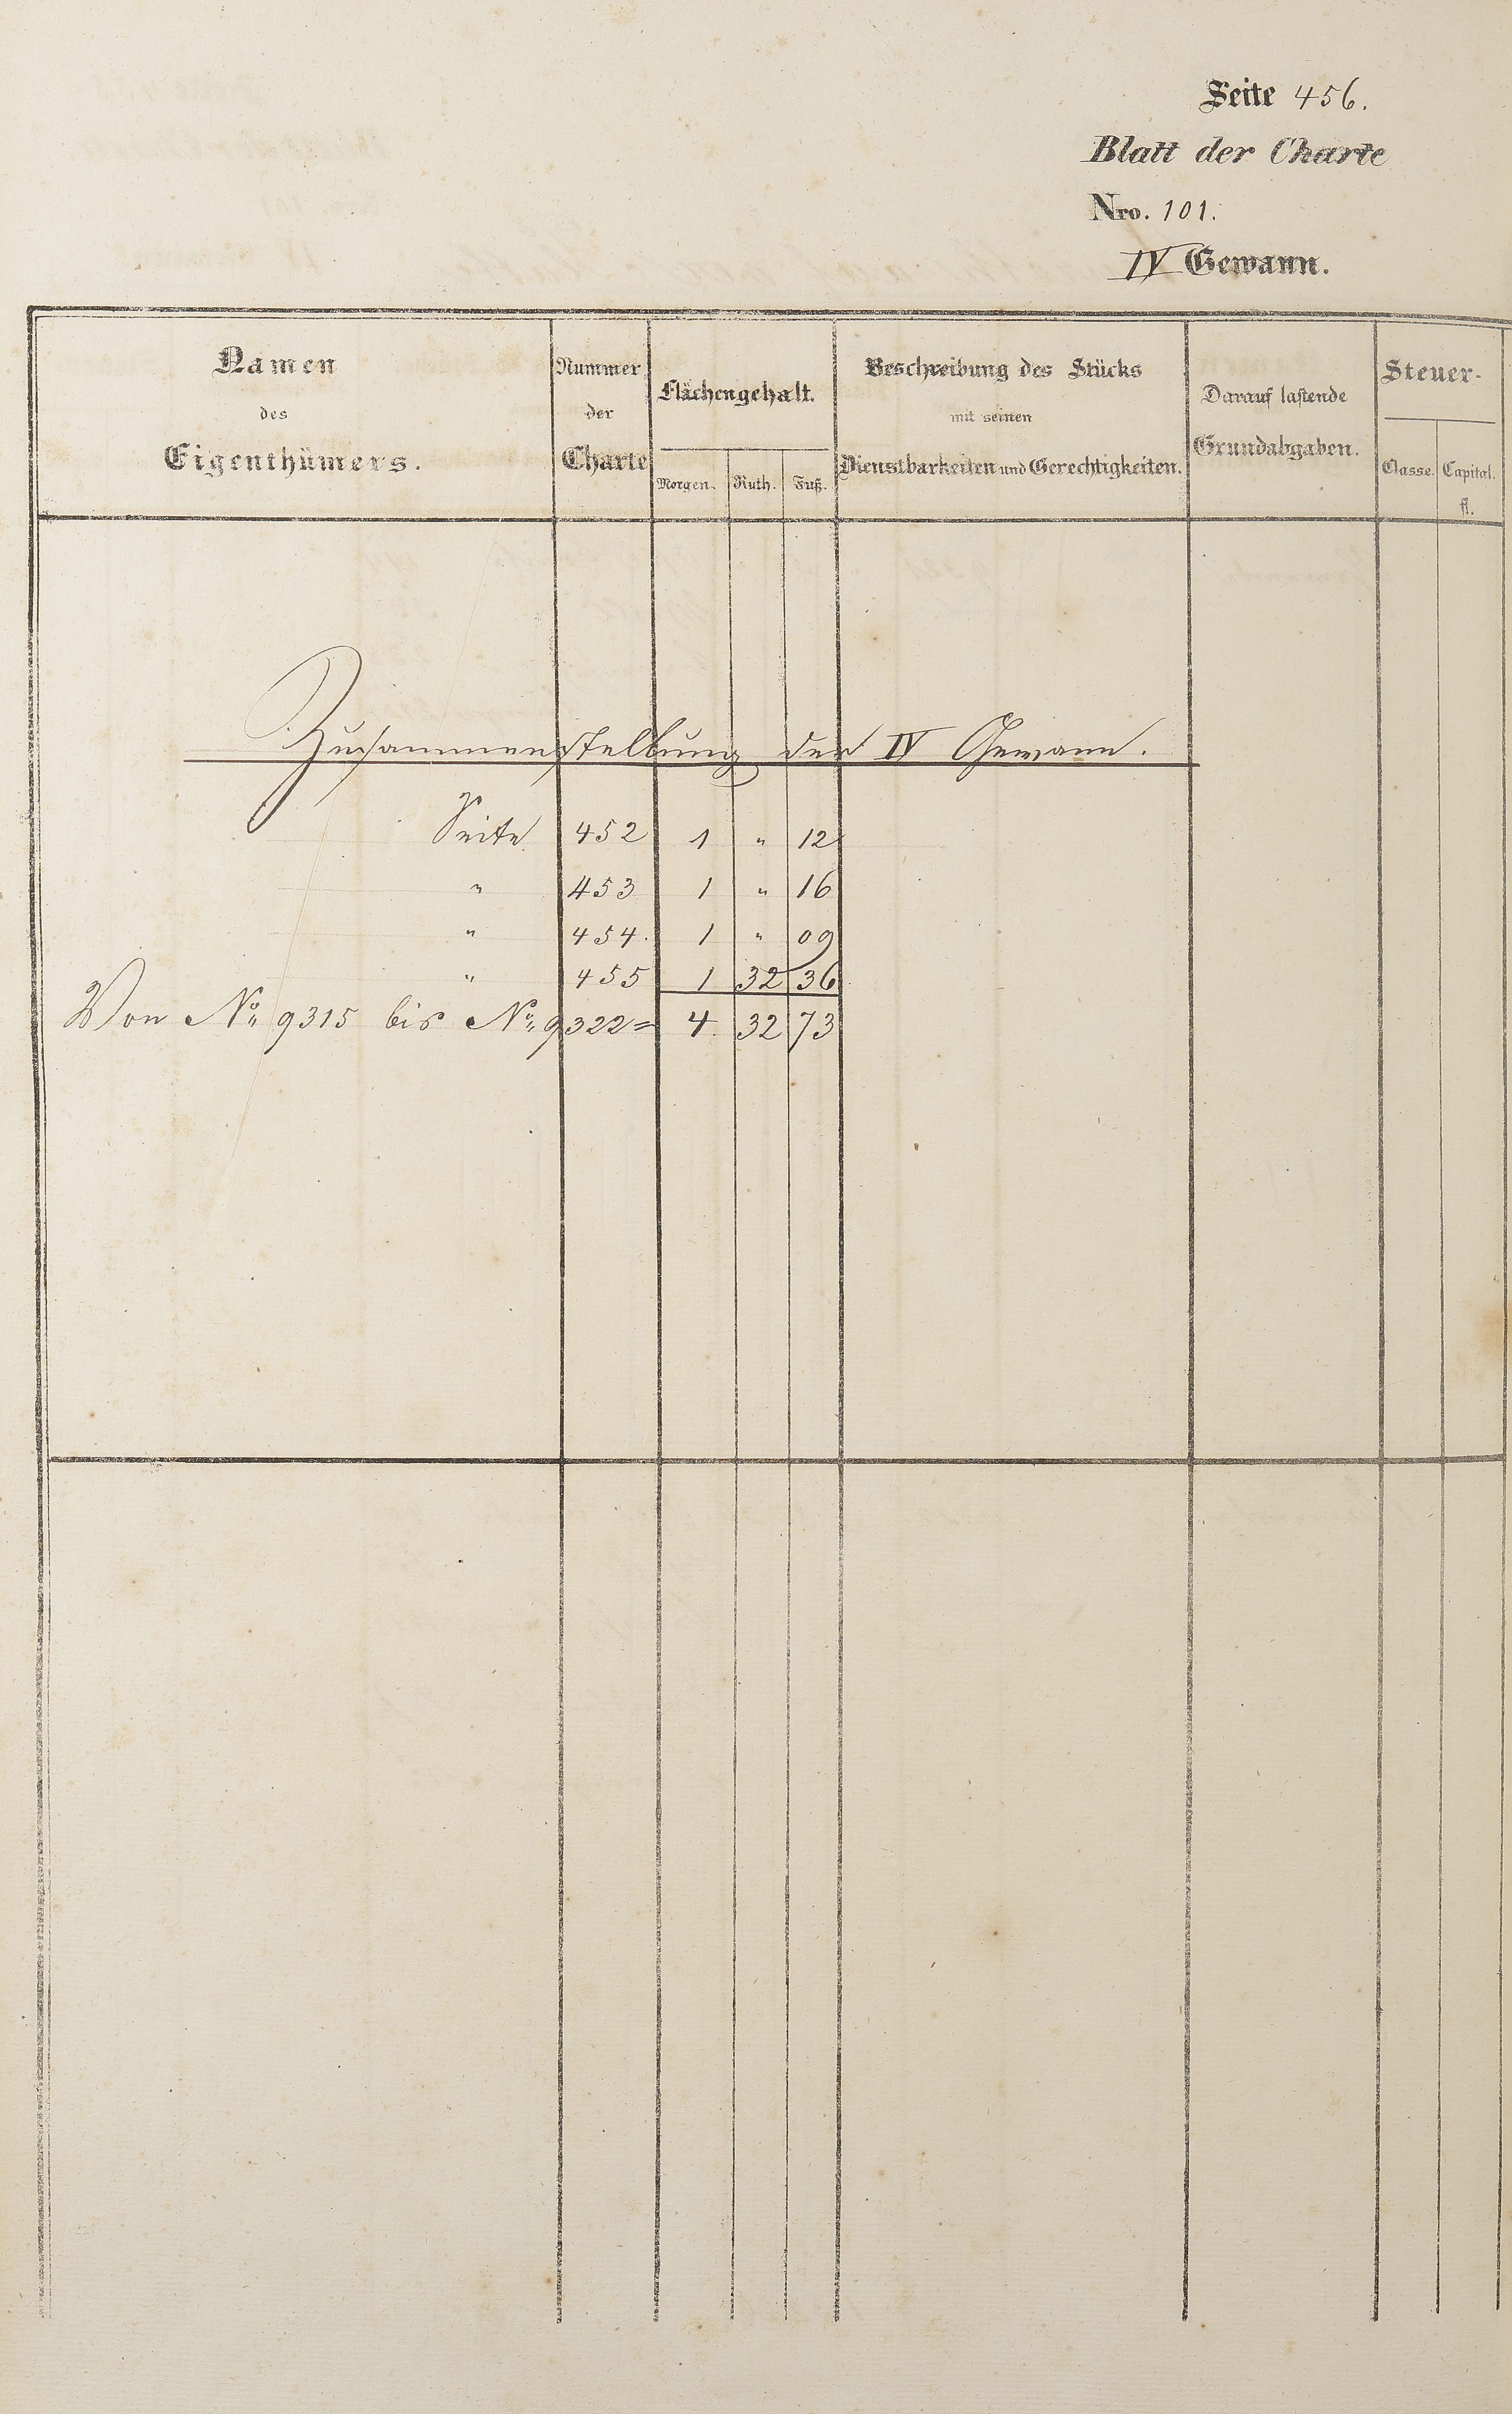 Seite 456.
Blatt der Charte
Nro. 101.
IV Gewann.
Namen
des
Eigenthümers.
Nummer
der
Charte
Flächengehalt.
Morgen. Ruth. Fuß.
Beschreibung des Stücks
mit seinen
Dienstbarkeiten und Gerechtigkeiten.
Darauf lastende
Grundabgaben.
Steuer-
Classe. Capital.
fl.
Zusammenstellung der IV Gewann.
Seite 452 1 " 12
" 453 1 " 16
" 454. 1 " 09
" 455 1 32 36
Von No. 9315 bis No. 9322 = 4. 32 73